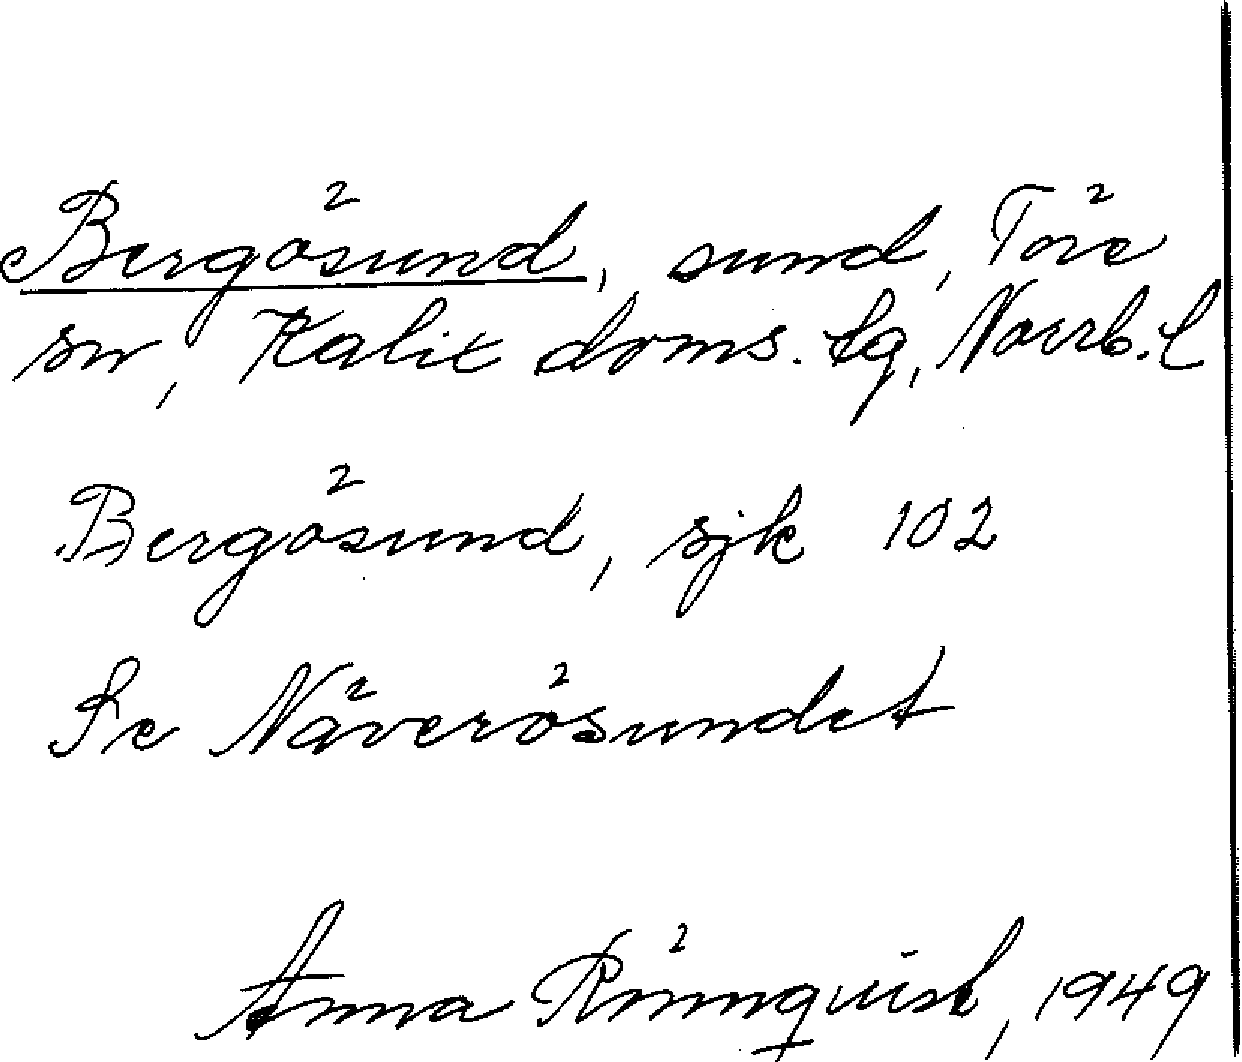 Bergösund, sund, Töre
sn, Kalix doms. tg, Norrb. l
Bergösund, sjk 102
Se Näverösundet
Anna Rönnquist, 1949